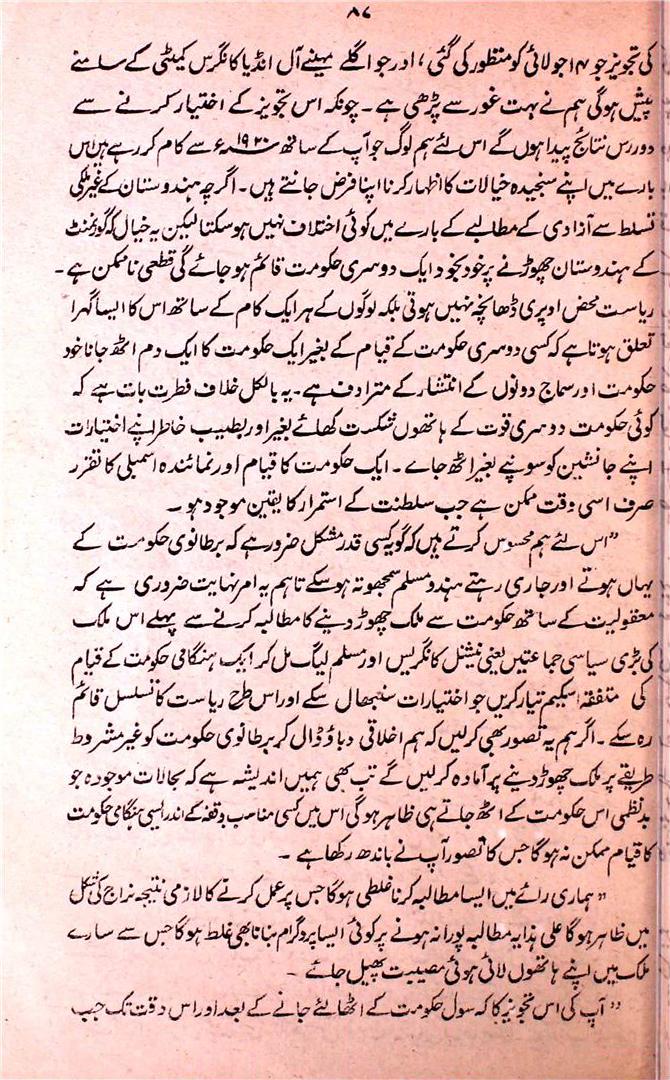 ۸۷
کی تجویز جو ۱۴ جولائی کو منظور کی گئی، اور جو اگلے مہینے آل انڈیا کانگرس کمیٹی کے سامنے
پیش ہوگی ہم نے بہت غور سے پڑھی ہے۔ چونکہ اس تجویز کے اختیار کرنے سے
دوررس نتائج پیدا ہوں گے اس لئے ہم لوگ جو آپ کے ساتھ ۱۹۲۰ء سے کام کر رہے ہیں اس
بارے میں اپنے سنجیدہ خیالات کا اظہار کرنا اپنا فرض جانتے ہیں۔ اگرچہ ہندوستان کے غیر ملکی
تسلط سے آزادی کے مطالبے کے بارے میں کوئی اختلاف نہیں ہو سکتا لیکن یہ خیال کہ گورنمنٹ
کے ہندوستان چھوڑنے پر خود بخود ایک دوسری حکومت قائم ہو جائے گی قطعی ناممکن ہے۔
ریاست محض اوپری ڈھانچہ نہیں ہوتی بلکہ لوگوں کے ہر ایک کام کے ساتھ اس کا ایسا گہرا
تعلق ہوتا ہے کہ کسی دوسری حکومت کے قیام کے بغیر ایک حکومت کا ایک دم اٹھ جانا خود
حکومت اور سماج دونوں کے انتشار کے مترادف ہے۔ یہ بالکل خلاف فطرت بات ہے کہ
کوئی حکومت دوسری قوت کے ہاتھوں شکست کھائے بغیر اور بطیب خاطر اپنے اختیارات
اپنے جانشین کو سونپے بغیر اٹھ جاے۔ ایک حکومت کا قیام اور نمائندہ اسمبلی کا تقرر
صرف اسی وقت ممکن ہے جب سلطنت کے استمرار کا یقین موجود ہو۔
”اس لئے ہم محسوس کرتے ہیں کہ گو یہ کسی قدر مشکل ضرور ہے کہ برطانوی حکومت کے
یہاں ہوتے اور جاری رہتے ہندو مسلم سمجھوتہ ہو سکے تاہم یہ امر نہایت ضروری ہے کہ
معقولیت کے ساتھ حکومت سے ملک چھوڑ دینے کا مطالبہ کرنے سے پہلے اس ملک
کی بڑی سیاسی جماعتیں یعنی نیشنل کانگریس اور مسلم لیگ مل کر ایک ہنگامی حکومت کے قیام
کی متفقہ اسکیم تیار کریں جو اختیارات سنبھال سکے اور اس طرح ریاست کا تسلسل قائم
رہ سکے۔ اگر ہم یہ تصور بھی کر لیں کہ ہم اخلاقی دباؤ ڈال کر برطانوی حکومت کو غیر مشروط
طریقے پر ملک چھوڑ دینے پر آمادہ کر لیں گے تب بھی ہمیں اندیشہ ہے کہ بحالات موجودہ جو
بدنظمی اس حکومت کے اٹھ جاتے ہی ظاہر ہوگی اس میں کسی مناسب وقفہ کے اندر ایسی ہنگامی حکومت
کا قیام ممکن نہ ہوگا جس کا تصور آپ نے باندھ رکھا ہے۔
”ہماری رائے میں ایسا مطالبہ کرنا غلطی ہوگا جس پر عمل کرنے کا لازمی نتیجہ نراج کی شکل
میں ظاہر ہوگا علی ہذا یہ مطالبہ پورا نہ ہونے پر کوئی ایسا پروگرام بنانا بھی غلط ہوگا جس سے سارے
ملک میں اپنے ہاتھوں لائی ہوئی مصیبت پھیل جائے۔
”آپ کی اس تجویز کا کہ سول حکومت کے اٹھا لئے جانے کے بعد اور اس وقت تک جب